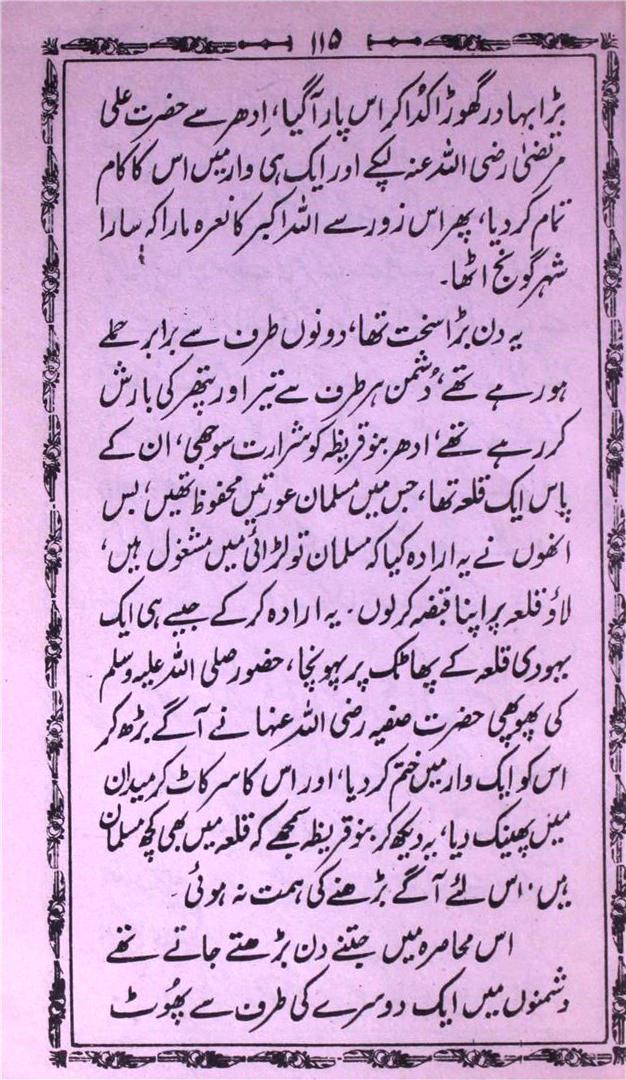 ۱۱۵
بڑا بہادر گھوڑا کُدا کر اس پار آگیا، اِدھر سے حضرت علی
مرتضیٰ رضی اللہ عنہ لپکے اور ایک ہی وار میں اس کا کام
تمام کر دیا، پھر اس زور سے اللہ اکبر کا نعرہ مارا کہ سارا
شہر گونج اٹھا۔
یہ دن بڑا سخت تھا، دونوں طرف سے برابر حملے
ہو رہے تھے، دُشمن ہر طرف سے تیر اور پتھر کی بارش
کر رہے تھے، ادھر بنو قریظہ کو شرارت سوجھی، ان کے
پاس ایک قلعہ تھا، جس میں مسلمان عورتیں محفوظ تھیں، بس
انھوں نے یہ ارادہ کیا کہ مسلمان تو لڑائی میں مشغول ہیں،
لاؤ قلعہ پر اپنا قبضہ کر لوں۔ یہ ارادہ کر کے جیسے ہی ایک
یہودی قلعہ کے پھاٹک پر پہونچا، حضور صلی اللہ علیہ وسلم
کی پھوپھی حضرت صفیہ رضی اللہ عنہا نے آگے بڑھ کر
اس کو ایک وار میں ختم کر دیا، اور اس کا سر کاٹ کر میدان
میں پھینک دیا، یہ دیکھ کر بنو قریظہ سمجھے کہ قلعہ میں بھی کچھ مسلمان
ہیں۔ اس لئے آگے بڑھنے کی ہمت نہ ہوئی۔
اس محاصرہ میں جتنے دن بڑھتے جاتے تھے
دشمنوں میں ایک دوسرے کی طرف سے پھُوٹ